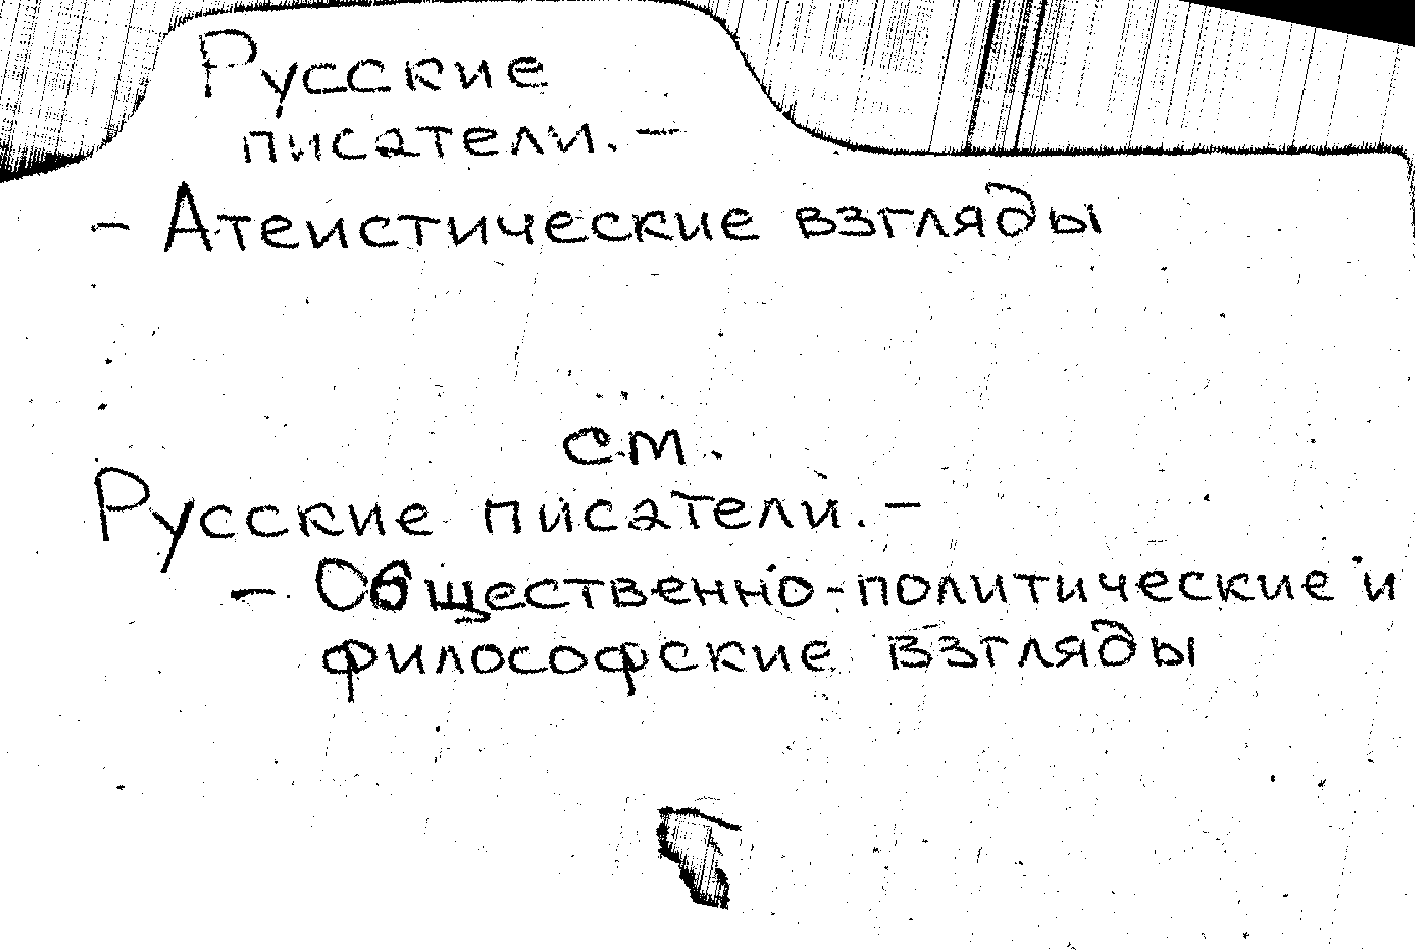 Русские
писатели. -
- Атеистические взгляды
см.
Русские писатели. -
- Общественно-политические и
философские взгляды